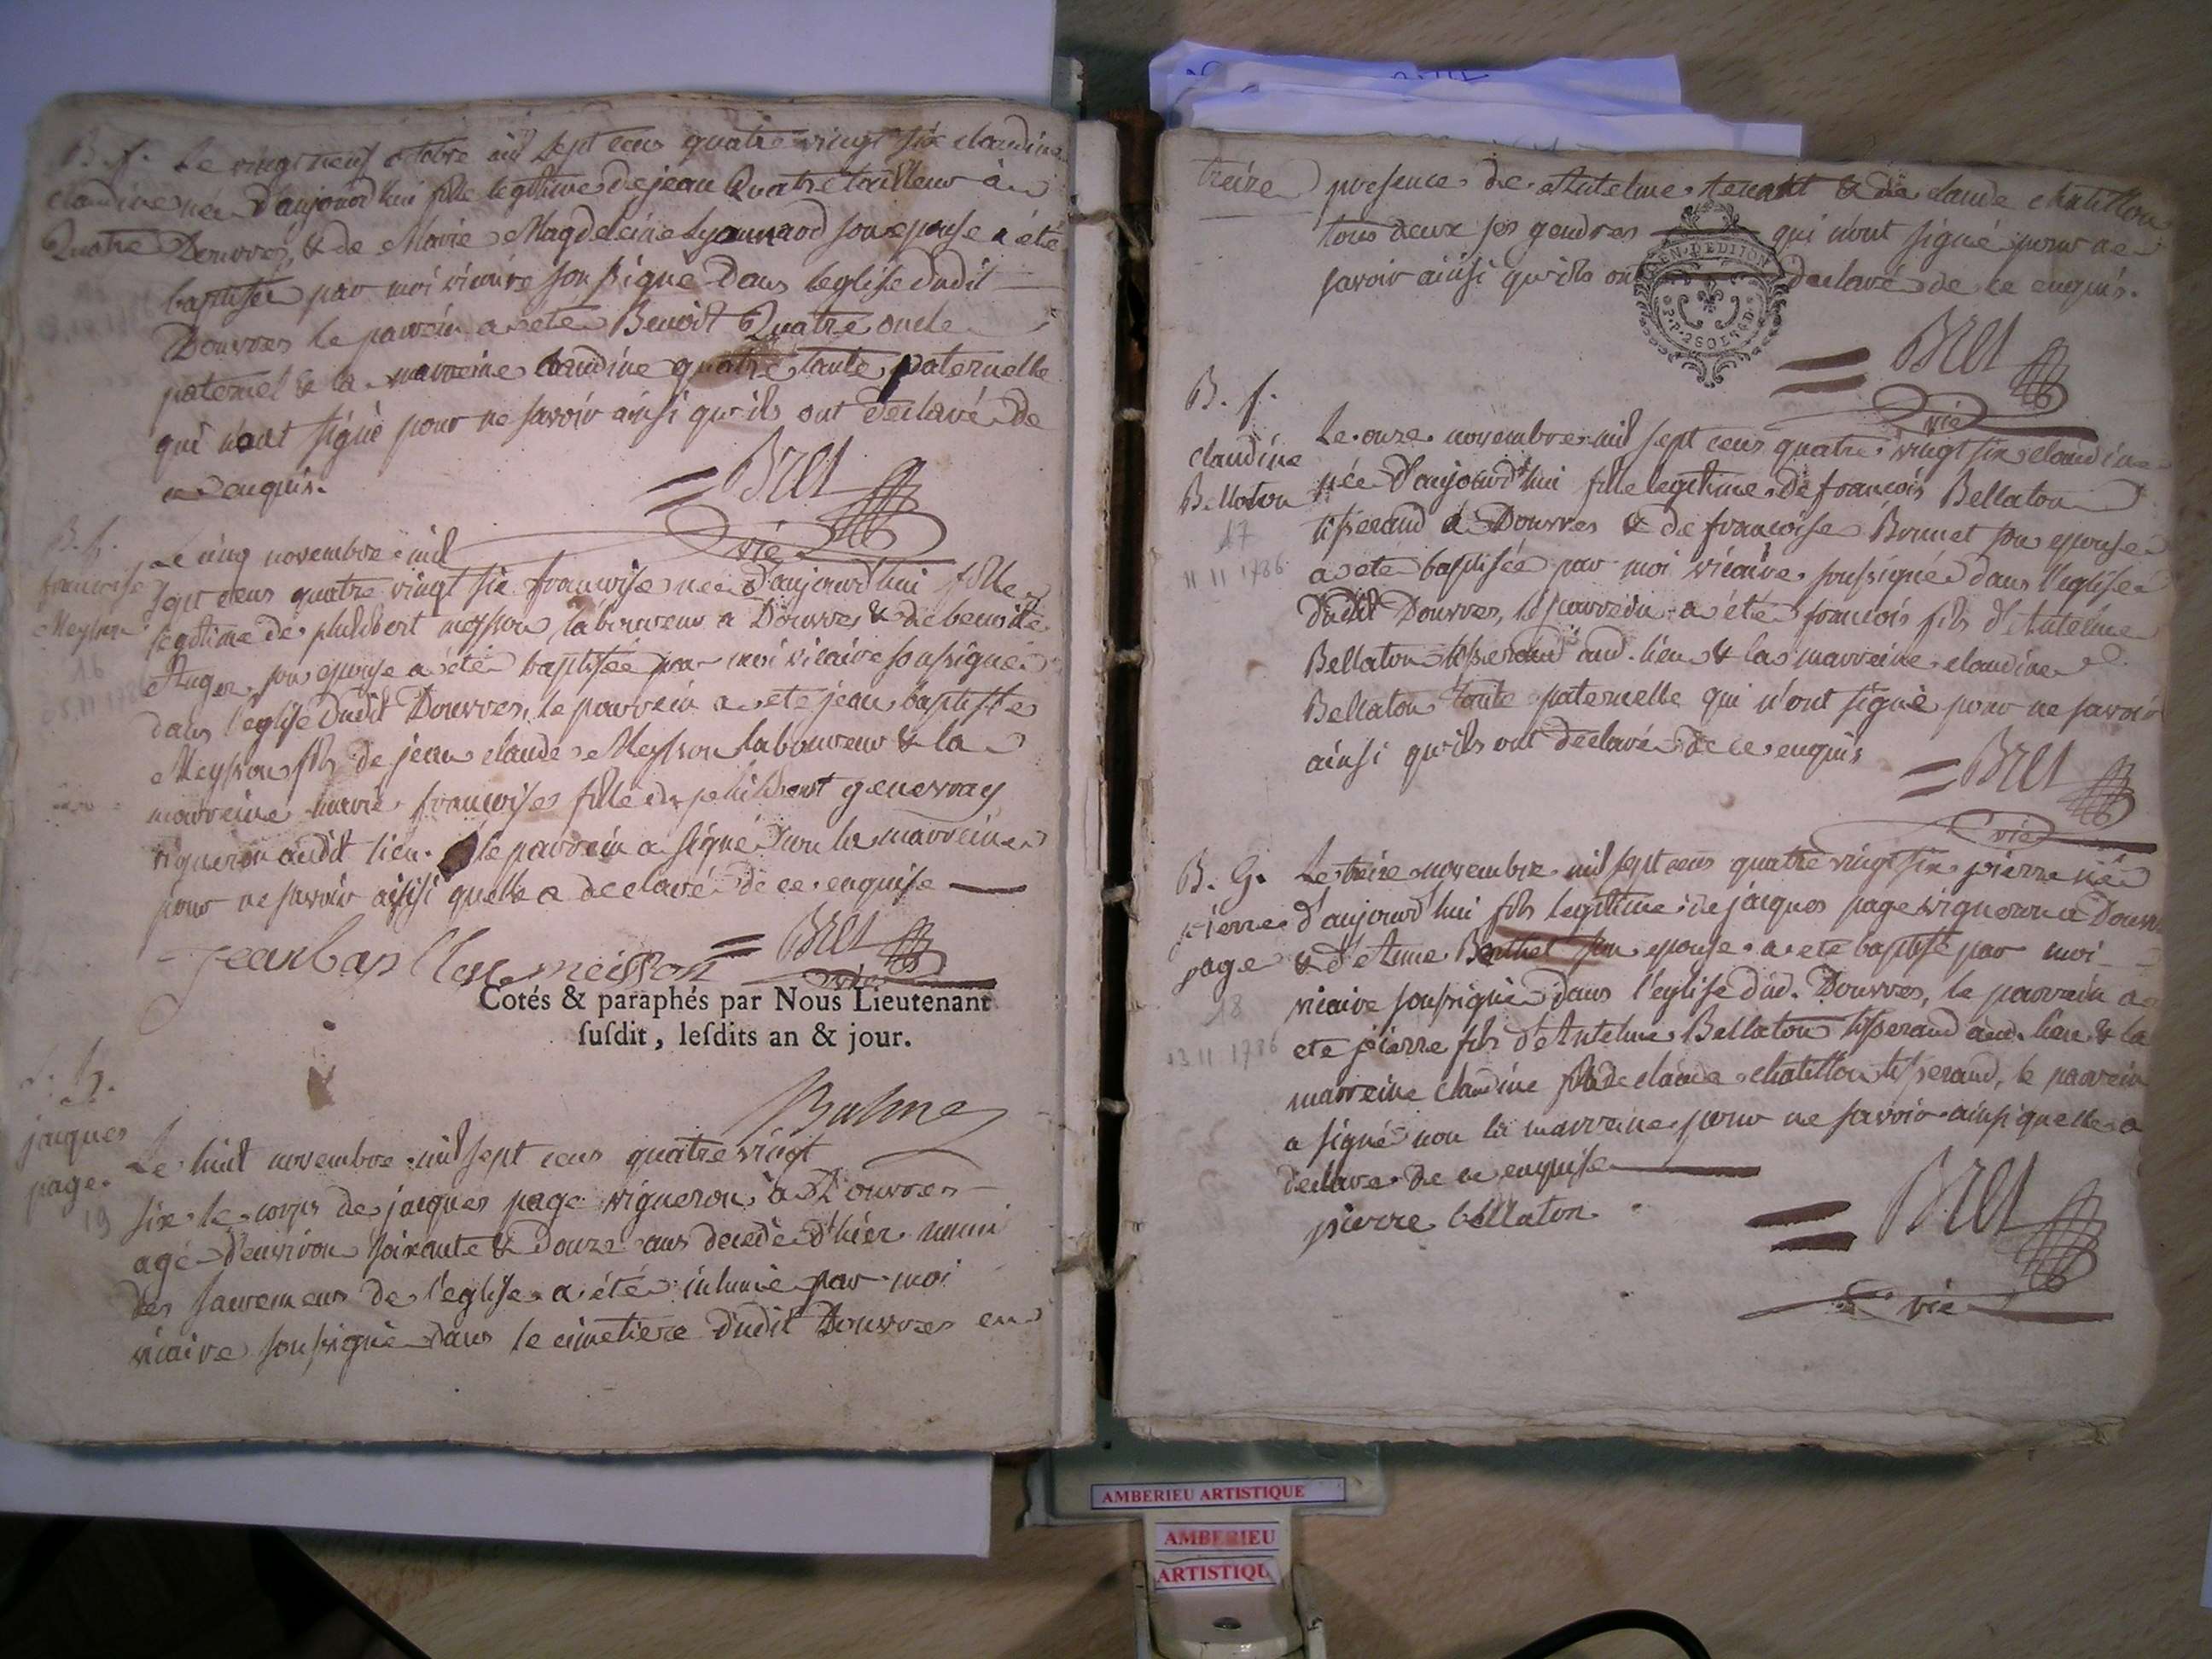 B. f. Le vingt neuf octobre mil sept cens quatre vingt six claudine
claudine née d'aujourd'hui fille legitime de jean Quatre tailleur à
Quatre Douvres, & de Marie Magdeleine Lyonnard son epouse a été
baptisée par moi vicaire soussigné dans l'eglise dudit
Douvres le parrein a eté Benoit Quatre oncle
paternel & la marreine claudine quatre tante paternelle
qui n'ont signé pour ne savoir ainsi qu'ils ont déclaré de
ce enquis.
= Bret
vic
B. f.
françoise
Meysson
16
Le cinq novembre mil
sept cens quatre vingt six françoise née d'aujourd'hui fille
legitime de philibert meysson laboureur a Douvres & de benoite
Auger son epouse a été baptisée par moi vicaire soussigné
dans l'eglise dudit Douvres, le parrein a eté jean baptiste
Meysson fils de jean claude Meysson laboureur & la
marreine marie françoise fille de philibert genevray
vigneron audit lieu. le parrein a signé non la marreine
pour ne savoir ainsi quelle a declaré de ce enquise
jean baptiste meisson = Bret
vic
Cotés & paraphés par Nous Lieutenant
susdit, lesdits an & jour.
Balme
jacques
page.
19
Le huit novembre mil sept cens quatre vingt
six le corps de jacques page vigneron à Douvres
agé d'environ soixante & douze ans decedé d'hier muni
des sacremens de l'eglise a été inhumé par moi
vicaire soussigné dans le cimetiere dudit Douvres en
treize presence de Antelme tenant & de claude chatillon
tous deux ses gendres qui n'ont signé pour ne
savoir ainsi qu'ils ont declaré de ce enquis.
GEN. DE DIJON
P.P. 2 SOLS 6 D.
= Bret
vic
B. f.
claudine
Bellaton
17
11 11 1786
Le onze novembre mil sept cens quatre vingt six claudine
née d'aujourd'hui fille legitime de françois Bellaton
tisserand à Douvres & de françoise Bonnet son epouse
a eté baptisée par moi vicaire soussigné dans l'eglise
dudit Douvres, le parrein a été françois fils d'Antelme
Bellaton tisserand aud. lieu & la marreine claudine
Bellaton tante paternelle qui n'ont signé pour ne savoir
ainsi qu'ils ont declaré de ce enquis
= Bret
vic
B. G.
pierre
page
18
13 11 1786
Le treize novembre mil sept cens quatre vingt six pierre né
d'aujourd'hui fils legitime de jacques page vigneron a Douvres
& d'Anne Berthet son epouse a eté baptisé par moi
vicaire soussigné dans l'eglise dud. Douvres, le parrein a
eté pierre fils d'Antelme Bellaton tisserand aud. lieu & la
marreine claudine fille de claude chatillon tisserand, le parrein
a signé non la marreine pour ne savoir ainsi quelle a
declaré de ce enquise
pierre bellaton
= Bret
vic
AMBERIEU ARTISTIQUE
AMBERIEU
ARTISTIQU